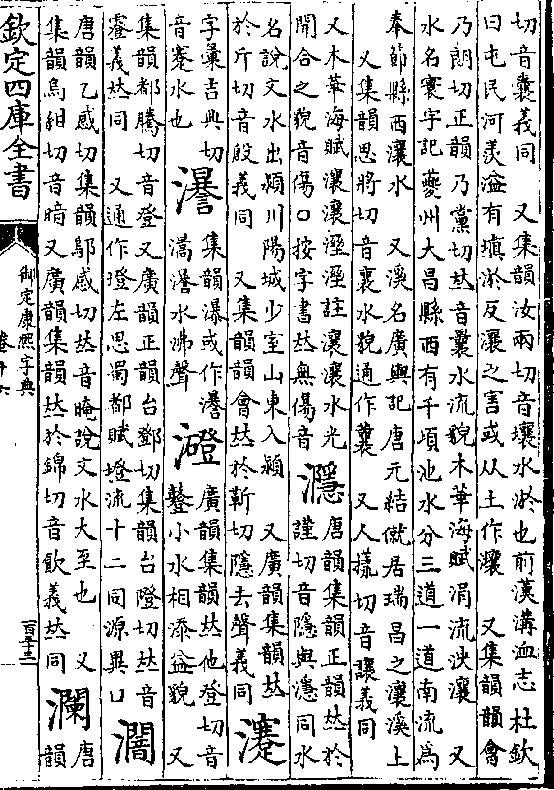 切音囊義同　又集韻汝兩切音壤水淤也前漢溝洫志杜欽
曰屯氏河羨溢有塡淤反瀼之害或从土作㶞　又集韻韻會
乃朗切正韻乃黨切𠀤音曩水流貌木華海賦涓流泱瀼　又
水名寰宇記夔州大昌縣西有千頃池水分三道一道南流爲
奉節縣西瀼水　又溪名廣輿記唐元結僦居瑞昌之瀼溪上
又集韻思將切音襄水貌通作瀼　又人樣切音讓義同
又木華海賦瀼瀼溼溼註瀼瀼水光
開合之貌音傷〇按字書𠀤無傷音
㶏
唐韻集韻正韻𠀤於
謹切音隱與濦同水
名說文水出潁川陽城少室山東入潁　又廣韻集韻𠀤
於斤切音殷義同　又集韻韻會𠀤於靳切隱去聲義同
𤅃
字彙吉典切
音蹇水也
灇
集韻瀑或作
滈灇水沸聲
澄
廣韻集韻𠀤他登切音
鼟小水相添益貌　又
集韻都騰切音登又廣韻正韻台鄧切集韻台隥切𠀤音
䠬義𠀤同　又通作墱左思蜀都賦墱流十二同源異口
濶
唐韻乙感切集韻鄔感切𠀤音晻說文水大至也　又
集韻烏紺切音暗又廣韻集韻𠀤於錦切音飮義𠀤同
瀾
唐
韻
欽定四庫全書
御定康熙字典
卷十六